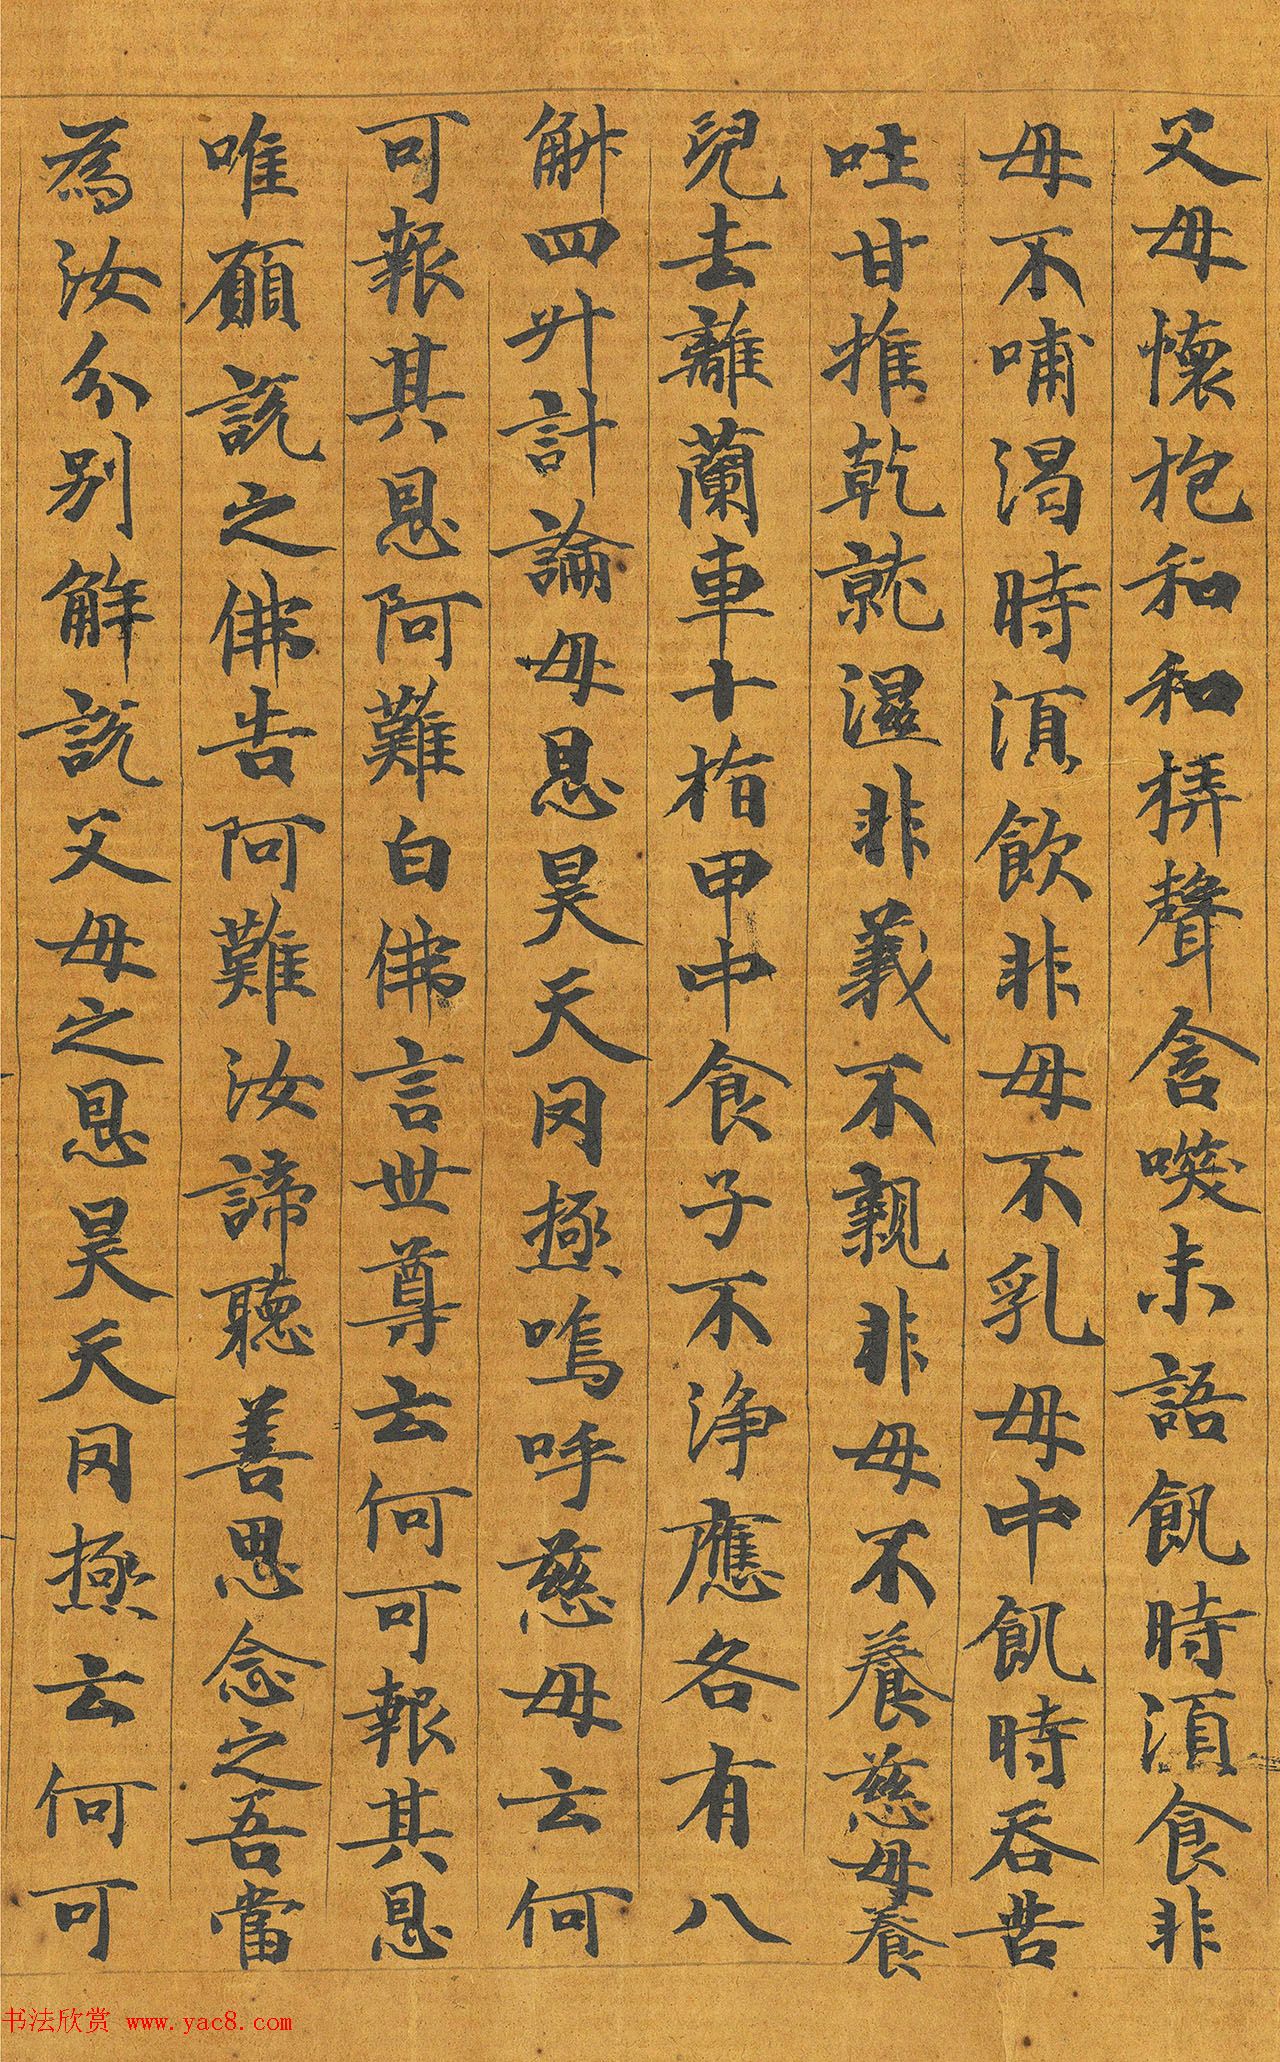 父母懷抱和和弄聲含唉未語飢時湏食非
母不哺渴時湏飲非母不乳母中飢時吞苦
吐甘推乾就濕非義不親非母不養慈母養
兒去離蘭車十指甲中食子不淨應各有八
斛四升計論母恩昊天罔極嗚呼慈母云何
可報其恩阿難白佛言世尊云何可報其恩
唯願說之佛告阿難汝諦聽善思念之吾當
為汝分別解說父母之恩昊天罔極云何可
书法欣赏 www.yac8.com